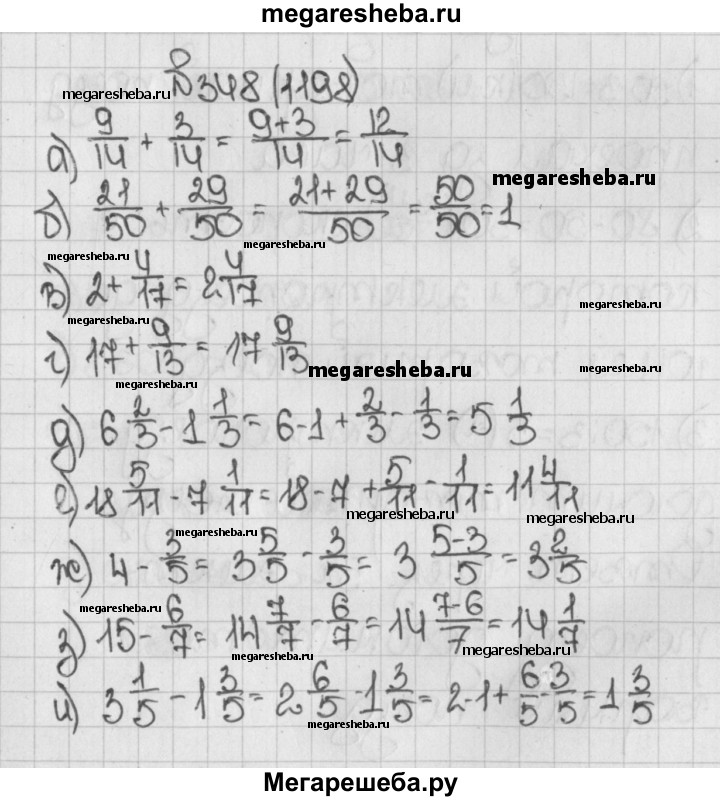 megaresheba.ru
№348 (1198)
megaresheba.ru
а) 9/14 + 3/14 = 9+3/14 = 12/14
megaresheba.ru
б) 21/50 + 29/50 = 21+29/50 = 50/50 = 1
megaresheba.ru
megaresheba.ru
в) 2 + 4/17 = 2 4/17
megaresheba.ru
megaresheba.ru
г) 17 + 9/13 = 17 9/13
megaresheba.ru
megaresheba.ru
megaresheba.ru
д) 6 2/3 - 1 1/3 = 6-1 + 2/3 - 1/3 = 5 1/3
е) 18 5/11 - 7 1/11 = 18-7 + 5/11 - 1/11 = 11 4/11
megaresheba.ru
megaresheba.ru
megaresheba.ru
ж) 4 - 3/5 = 3 5/5 - 3/5 = 3 5-3/5 = 3 2/5
megaresheba.ru
з) 15 - 6/7 = 14 7/7 - 6/7 = 14 7-6/7 = 14 1/7
megaresheba.ru
megaresheba.ru
и) 3 1/5 - 1 3/5 = 2 6/5 - 1 3/5 = 2-1 + 6/5 - 3/5 = 1 3/5
megaresheba.ru
Мегарешеба.ру